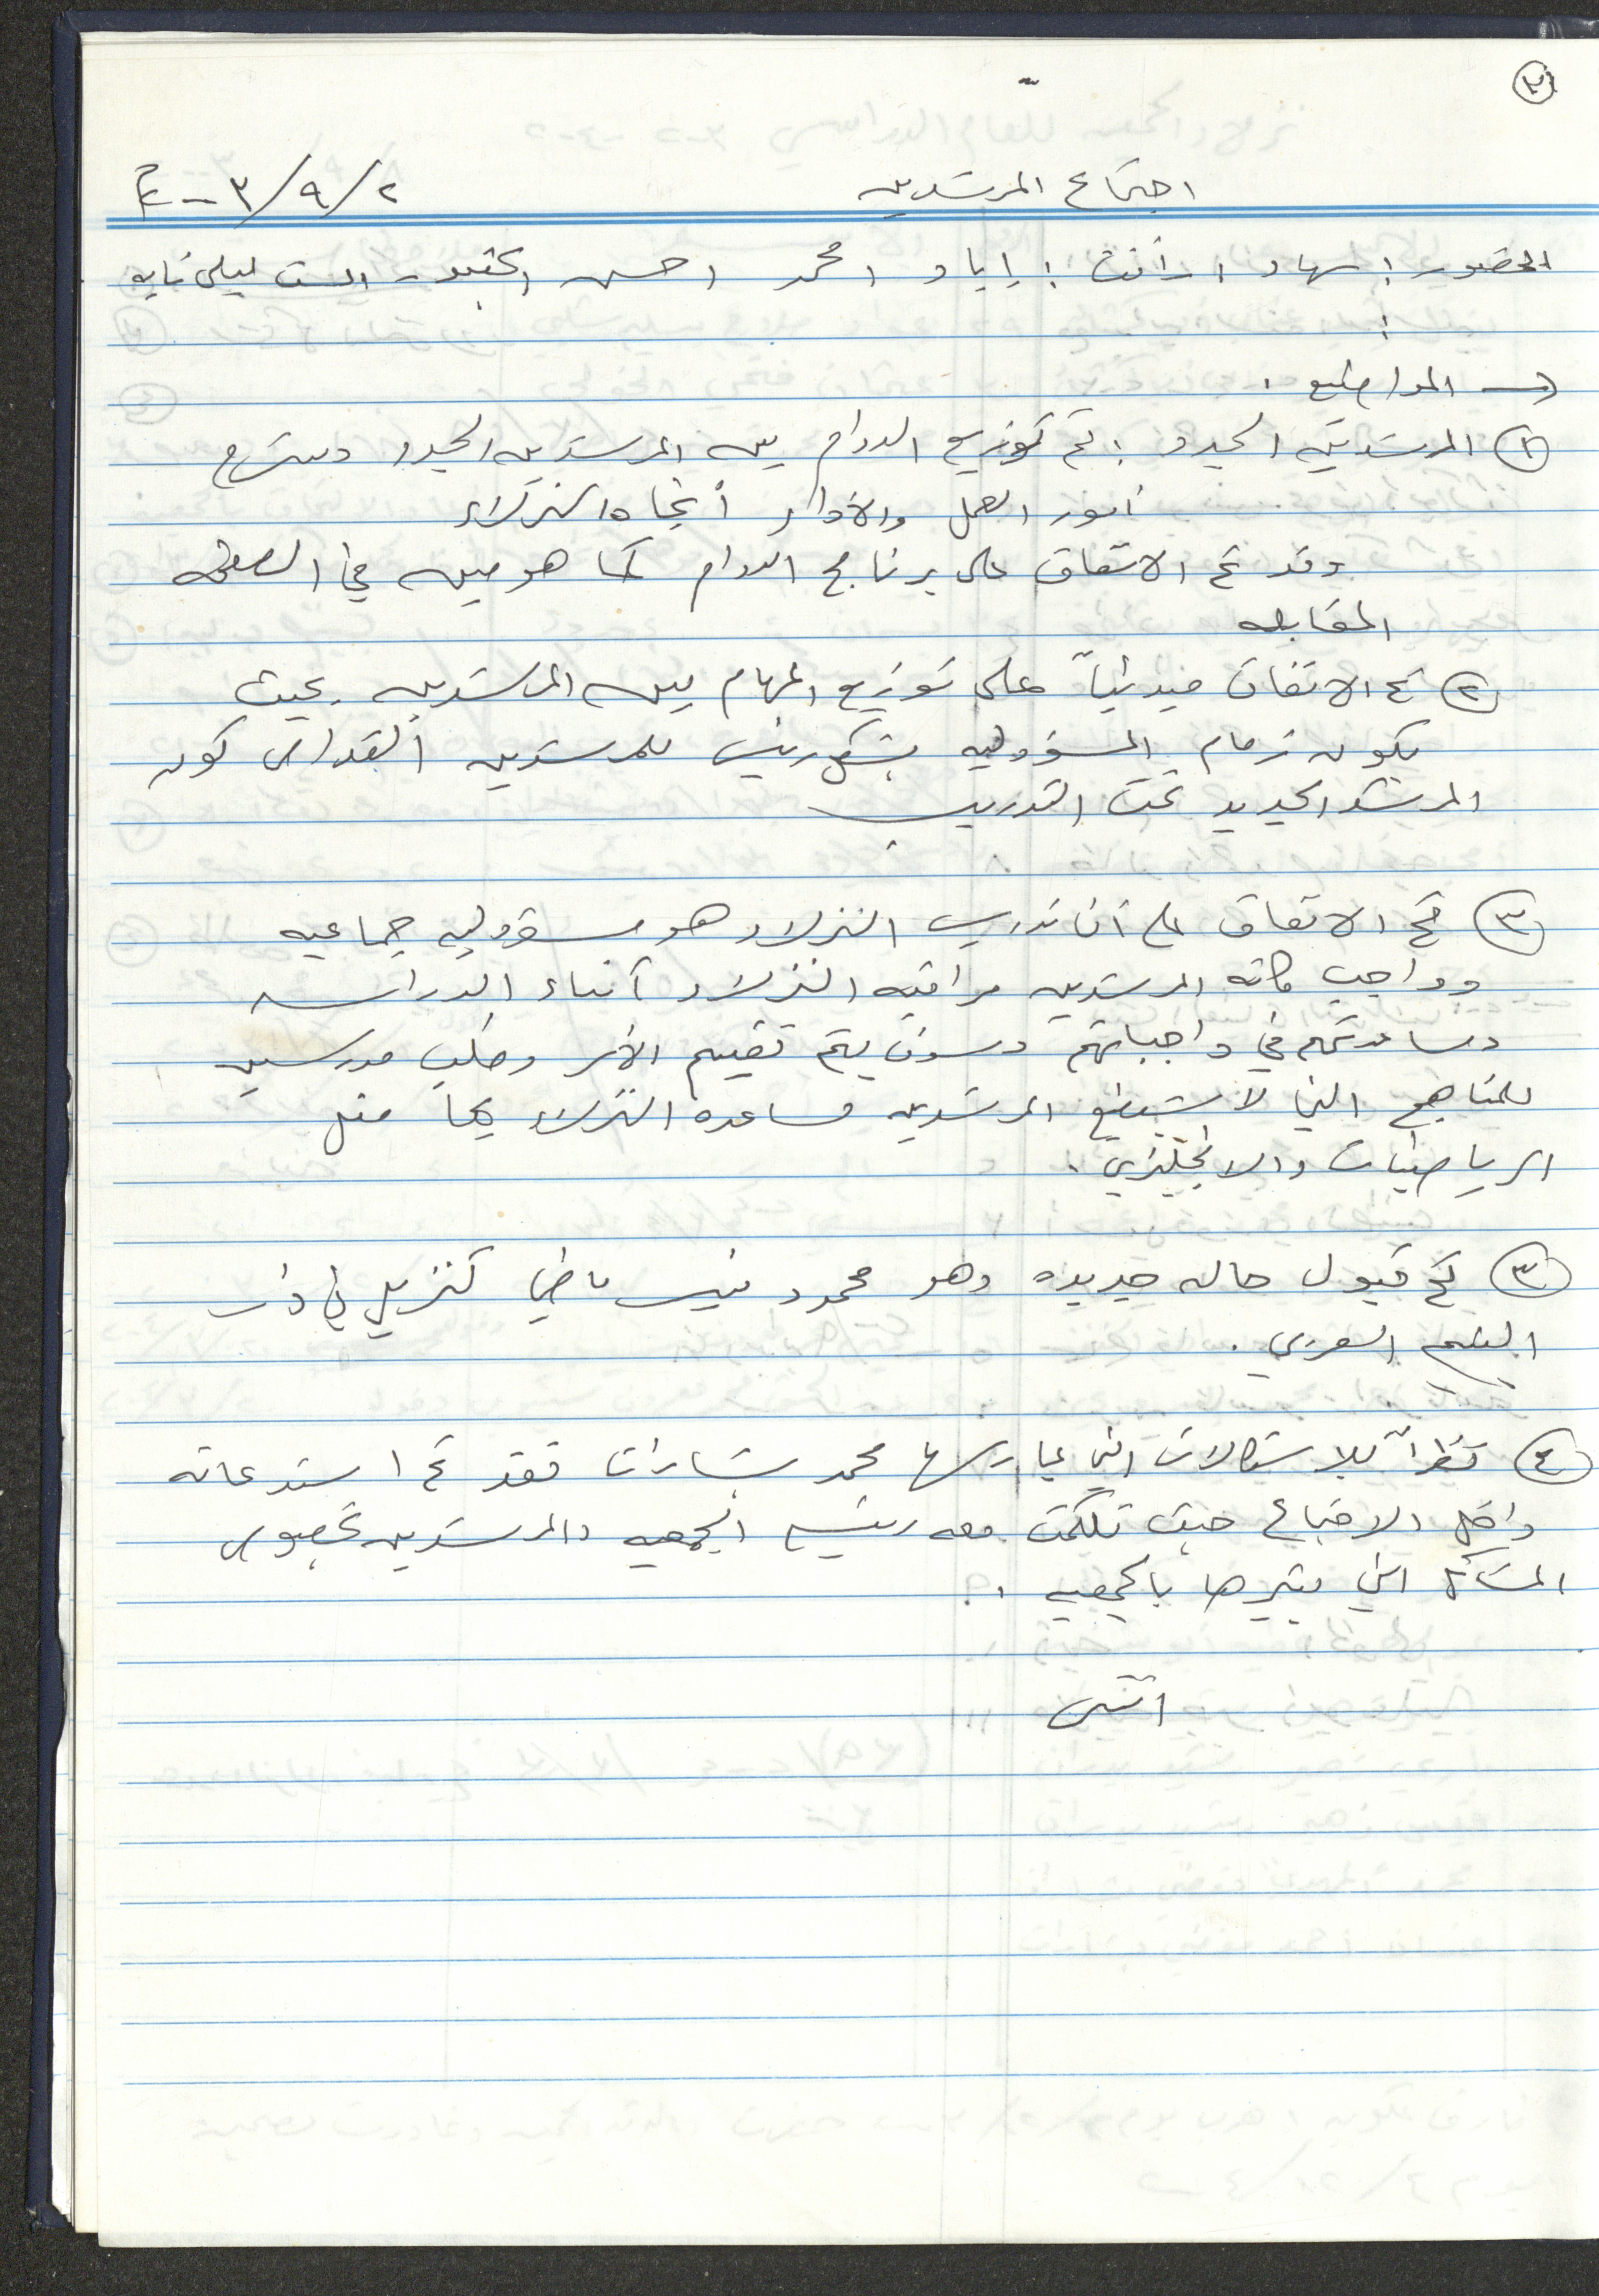 ٢
اجتماع المرشدين ٢/٩/٢٠٠٣
الحضور: سهاد، رأفت، إياد، محمد، حسن، الست ليلى
المواضيع.
١) المرشدين الجدد: تم توزيع الدوام بين المرشدين الجدد وشرح
أمور العمل والأدوار اتجاه النزلاء
وقد تم الاتفاق على برنامج الدوام كما هو مبين في الصفحه
المقابله
٢) تم الاتفاق مبدئياً على توزيع المهام بين المرشدين بحيث
يكون زمام المسؤوليه بشكل رئيسي للمرشدين القدامى كون
المرشد الجديد تحت التدريب
٣) تم الاتفاق على أن تدريس النزلاء هو مسؤوليه جماعيه
وواجب كافه المرشدين مراقبه النزلاء أثناء الدراسه
ومساعدتهم في واجباتهم وسوف يتم تقييم الأمر وطلب مدرسين
للمناهج التي لا يستطيع المرشدين مساعده النزلاء بها مثل
الرياضيات والانجليزي.
٣) تم قبول حاله جديده وهو محمود كنزيل في دار
اليتيم العربي.
٤) نظراً للاشكالات التي يمارسها محمد بشارات فقد تم استدعائه
داخل الاجتماع حيث تكلمت معه رئيسه الجمعيه والمرشدين بخصوص
المشاكل التي يثيرها بالجمعيه.
انتهى